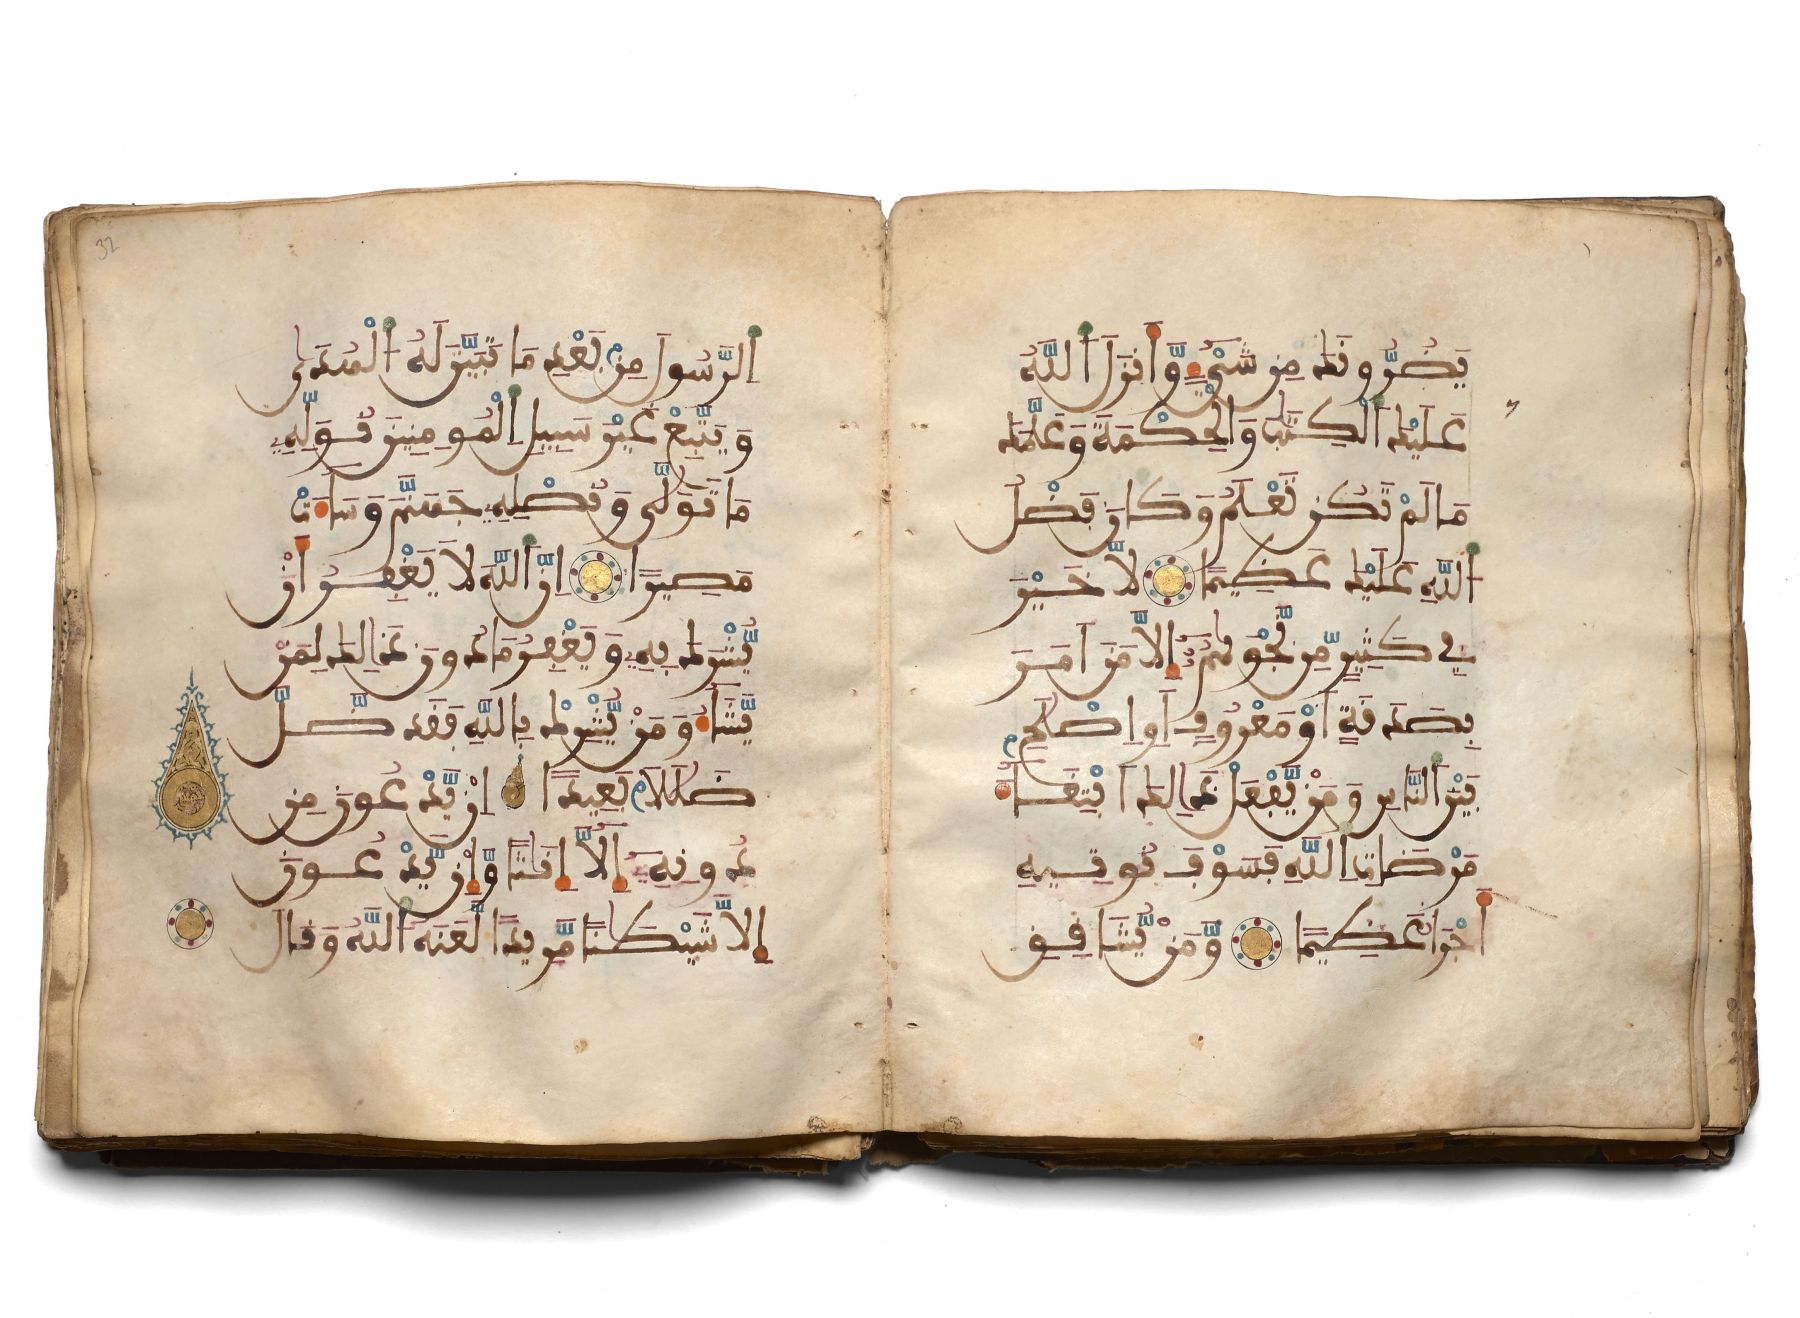 يَضُرُّونَكَ مِن شَيْءٍ وَّأَنزَلَ اَللَّهُ
عَلَيْكَ اَلْكِتَٰبَ وَالْحِكْمَةَ وَعَلَّمَكَ
مَا لَمْ تَكُن تَعْلَمُ وَكَانَ فَضْلُ
اُللَّهِ عَلَيْكَ عَظِيمًا لَّا خَيْرَ
فِے كَثِيرٍ مِّن نَّجْوٜىٰهُمُۥٓ إِلَّا مَنَ اَمَرَ
بِصَدَقَةٍ اَوْ مَعْرُوفٍ اَوِ اِصْلَٰحِۢ
بَيْنَ اَلنَّاسِ وَمَنْ يَّفْعَلْ ذَٰلِكَ اَبْتِغَآءَ
مَرْضَاتِ اِللَّهِ فَسَوْفَ نُوتِيهِ
أَجْرًا عَظِيمًا وَّمَنْ يُّشَاقِقِ
اِلرَّسُولَ مِنۢ بَعْدِ مَا تَبَيَّنَ لَهُ اُلْهُدَىٰ
وَيَتَّبِعْ غَيْرَ سَبِيلِ اِلْمُومِنِينَ نُوَلِّهِۦ
مَا تَوَلَّىٰ وَنُصْلِهِۦ جَهَنَّمَ وَسَآءَتْ
مَصِيرًا اِنَّ اَللَّهَ لَا يَغْفِرُ أَنْ
يُّشْرَكَ بِهِۦ وَيَغْفِرُ مَا دُونَ ذَٰلِكَ لِمَنْ
يَّشَآءُ وَمَنْ يُّشْرِكْ بِاللَّهِ فَقَد ضَّلَّ
ضَلَٰلَاۢ بَعِيدًا اِنْ يَّدْعُونَ مِن
دُونِهِۦٓ إِلَّآ إِنَٰثًا وَّإِنْ يَّدْعُونَ
إِلَّا شَيْطَٰنًا مَّرِيدًا لَّعَنَهُ اُللَّهُ وَقَالَ
32